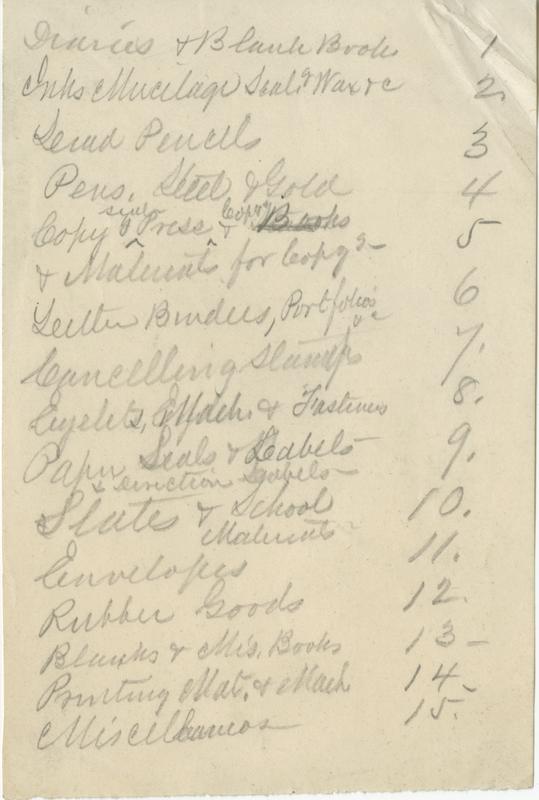 Diaries & Blank Books 1
Inks Mucilage Seal.g Wax &c 2.
Lead Pencils 3
Pens, Steel & Gold 4
Copy Press & Copyg Books 5
& Materials for Copyg
Letter Binders, Portfolios &c 6
Cancelling Stamps 7.
Eyelets, Mach. & Fasteners 8.
Paper Seals & Labels 9.
& Direction Labels
Slates & School 10.
Materials
Envelopes 11.
Rubber Goods 12.
Blanks & Mis. Books 13
Printing Mat. & Mach 14
Miscellaneos 15.